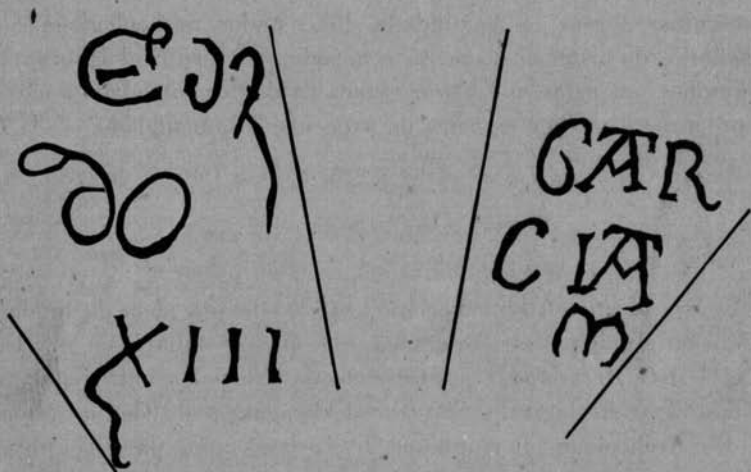 do
XIII
GAR
CIA
M